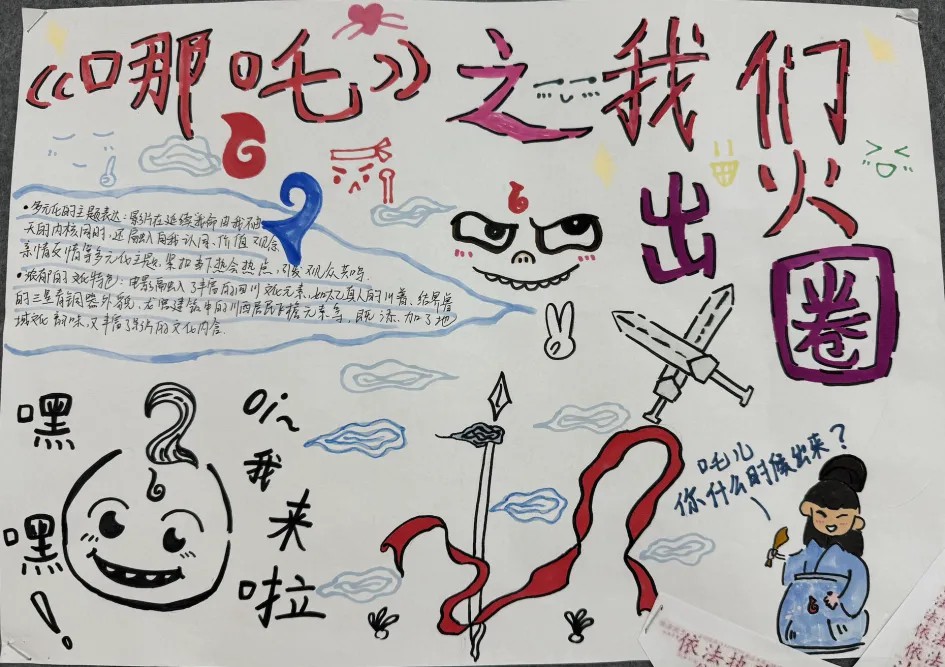 《哪吒》之我们
火
出
圈
•多元化的主题表达:影片在延续我命由我不由
天的内核同时,还融入自我认同、价值观念、
亲情友情等多元化主题,紧扣当下社会热点,引发观众共鸣.
•浓郁的文化特色:电影融入了丰富的四川文化元素,如太乙真人的川普、结界兽
的三星青铜器外貌,龙 建筑中的川西居民吊檐元素等,既添加了地
域文化韵味,又丰富了影片的文化内容.
嘿
嘿
!
oi~
我
来
啦
吒儿
你什么时候出来?
依法
依法
依法